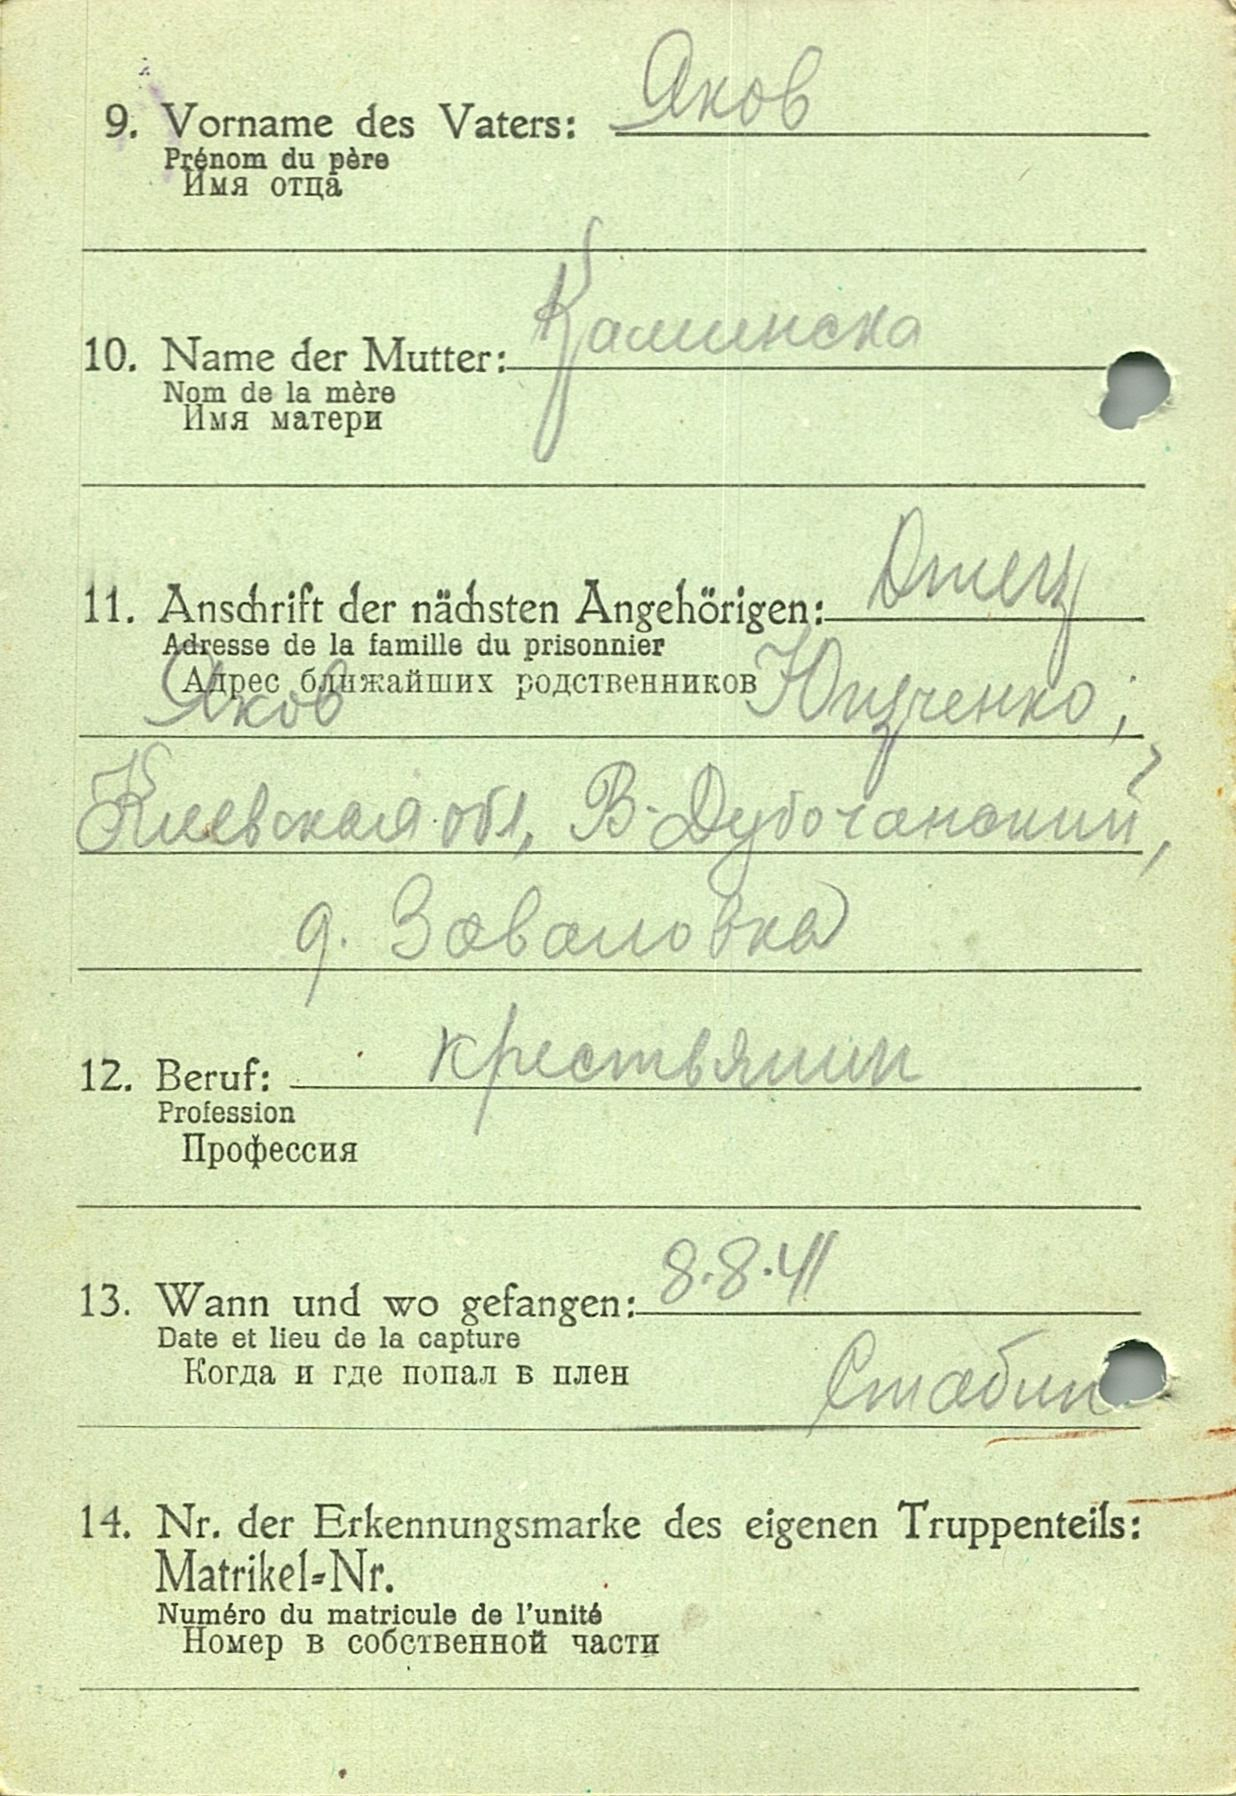 9. Vorname des Vaters: Яков
Prénom du père
Имя отца
10. Name der Mutter: Каминска
Nom de la mère
Имя матери
11. Anschrift der nächsten Angehörigen: Отец
Adresse de la famille du prisonnier
Адрес ближайших родственников
Яков Ющченко;
Киевская обл, В-Дубочанский,
д. Заваловка
12. Beruf: крествянин
Profession
Профессия
13. Wann und wo gefangen: 8.8.41
Date et lieu de la capture
Когда и где попал в плен
14. Nr. der Erkennungsmarke des eigenen Truppenteils:
Matrikel-Nr.
Numéro du matricule de l'unité
Номер в собственной части